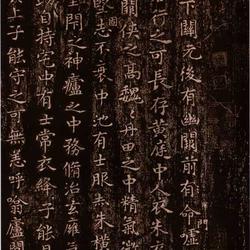 下關元後有幽闕前有命噓
行之可長存黃庭中人衣朱衣
闕俠之高魏〻丹田之中精氣微
堅志不衰中池有士服赤朱橫
閉之神廬之中務脩治玄廱氣
自持宅中有士常衣絳子能見
上子能守之可無恙呼噏廬間